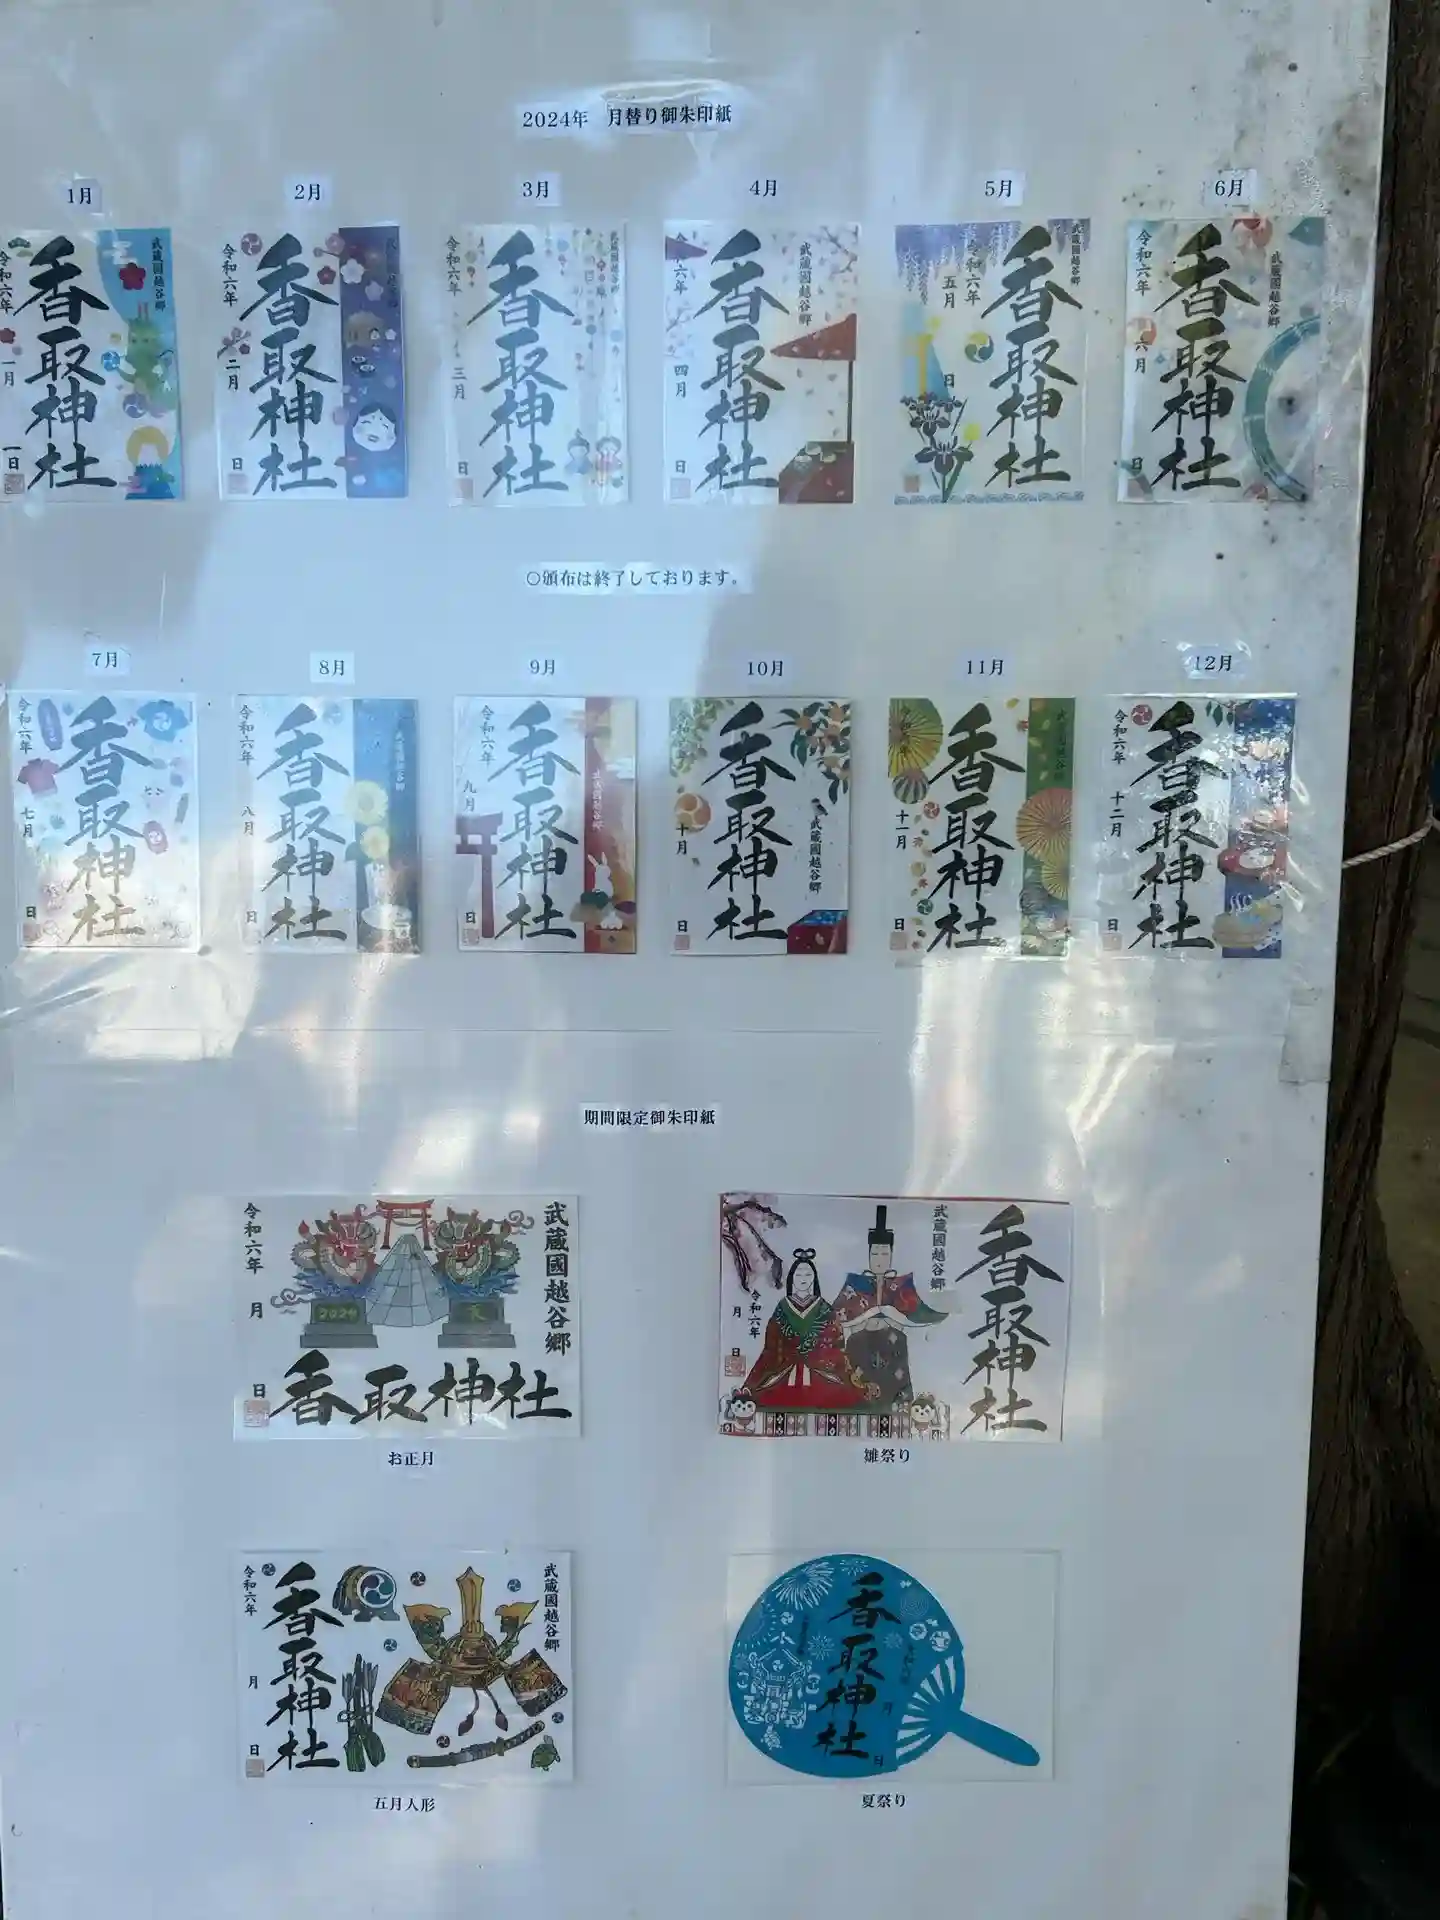 2024年　月替り御朱印紙
1月
2月
3月
4月
5月
6月
令和六年
一月
一日
香取神社
武蔵國越谷郷
令和六年
二月
日
香取神社
令和六年
三月
日
香取神社
武蔵國越谷郷
四月
日
香取神社
武蔵國越谷郷
令和六年
五月
日
香取神社
武蔵國越谷郷
令和六年
六月
日
香取神社
武蔵國越谷郷
○頒布は終了しております。
7月
8月
9月
10月
11月
12月
令和六年
七月
日
香取神社
令和六年
八月
日
香取神社
武蔵國越谷郷
令和六年
九月
日
香取神社
武蔵國越谷郷
十月
日
香取神社
武蔵國越谷郷
十一月
日
香取神社
令和六年
十二月
日
香取神社
期間限定御朱印紙
令和六年
月
日
2024
武蔵國越谷郷
香取神社
お正月
令和六年
月
日
武蔵國越谷郷
香取神社
雛祭り
令和六年
月
日
香取神社
武蔵國越谷郷
五月人形
香取神社
月
日
夏祭り